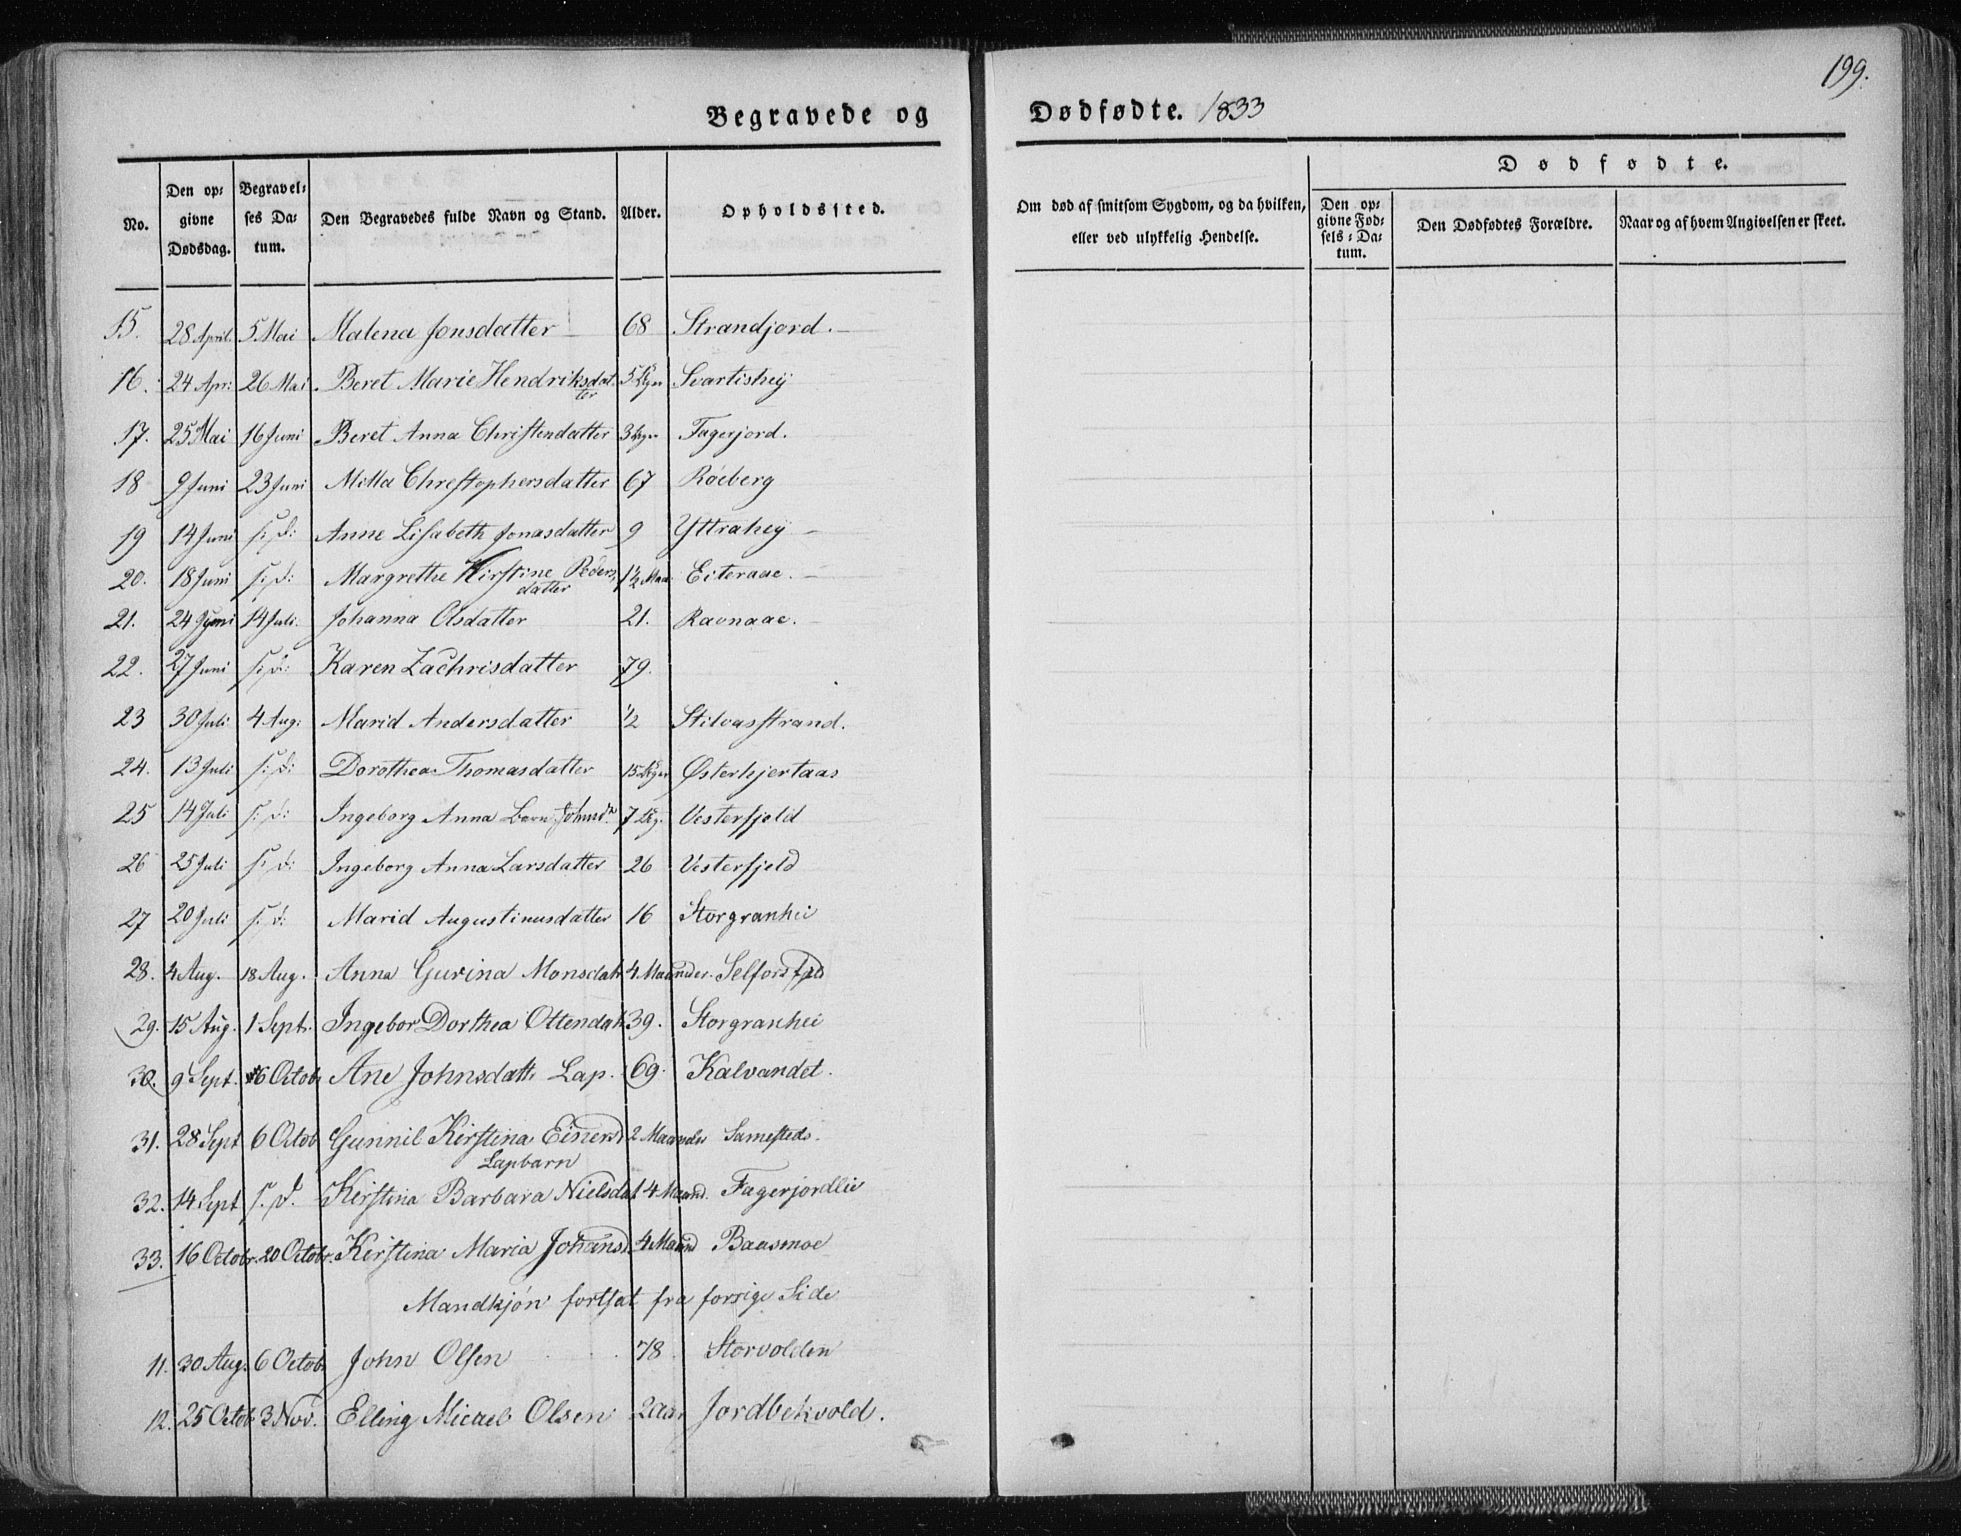 199.
Begravede og Dødfødte. 1833
Dødfødte.
No. Den op= givne Dødsdag. Begravel= ses Da= tum. Den Begravedes fulde Navn og Stand. Alder. Opholdssted. Om død af smitsom Sygdom, og da hvilken, eller ved ulykkelig Hendelse. Den op= givne Fød= sels=Da= tum. Den Dødfødtes Forældre. Naar og af hvem Angivelsen er skeet.
15. 28 April. 5 Mai Malena Jonsdatter 68 Strandjord.
16. 24 Apr: 26 Mai Beret Marie Hendriksdat 5 Svartishey
ter
17. 25 Mai 16 Juni Beret Anna Christendatter 3 Fagerjord.
18 9 Juni 23 Juni Mitta Chrestophersdatter 67 Røeberg
19 14 Juni s: d: Anne Lisabeth Jonasdatter 9 Yttrahey
20. 18 Juni s: d: Margrethe Kirstine Peders 1½ Maa Eiteraae.
datter
21. 24 Juni 14 Juli. Johanna Olsdatter 21. Ravnaae.
22. 27 Juni s: d: Karen Zachrisdatter 79.
23 30 Juli 4 Aug: Marid Andersdatter ½ Stilvasstrand.
24. 13 Juli s: d: Dorothea Thomasdatter 15 Østerhjertaas
25 14 Juli s: d: Ingeborg Anna 7 Vesterfjeld
26 25 Juli s: d: Ingeborg Anna Larsdatter 26 Vesterfjeld
27 20 Juli s: d: Marid Augustinusdatter 16 Storgranhei
28. 4 Aug. 18 Aug. Anna Gurina Monsdatt 4 Maander. Selforsfjeld
29. 15 Aug. 1 Sept. Ingebor Dorthea Ottendatt 39. Storgranhei
30. 9 Sept. 6 Octob Ane Johnsdatt. Lap. 69. Kalvandet.
31. 28 Sept 6 Octob Gunnil Kirstina Einersd 2 Maander Samesteds.
Lapbarn
32. 14 Sept s. d. Kirstina Barbara Nielsdat 4 Maand. Fagerjordlie
33. 16 Octobr. 20 Octobr. Kirstina Maria Johansd 4 Maand Baasmoe
Mandkjøn fortsat fra forrige Side
11. 30 Aug. 6 Octob John Olsen 78 Storvolden
12. 25 Octob 3 Nov. Elling Micael Olsen 2 aar Jordbekvold.